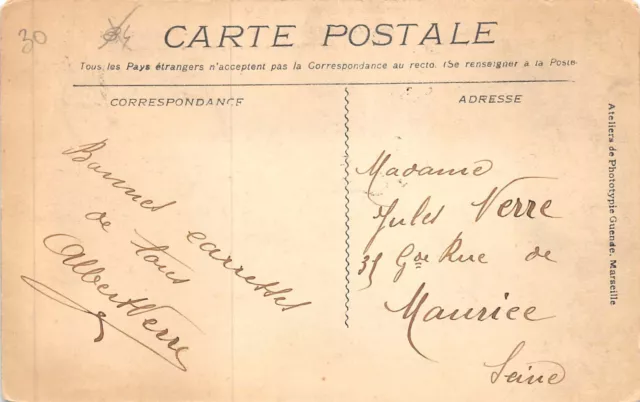 30
CARTE POSTALE
Tous les Pays étrangers n'acceptent pas la Correspondance au recto. (Se renseigner à la Poste
CORRESPONDANCE
ADRESSE
Bonnes carresses
de tous
Albert Verre
Madame
Jules Verre
35 Gde Rue de
Maurice
Seine
Ateliers de Phototypie Guende, Marseille